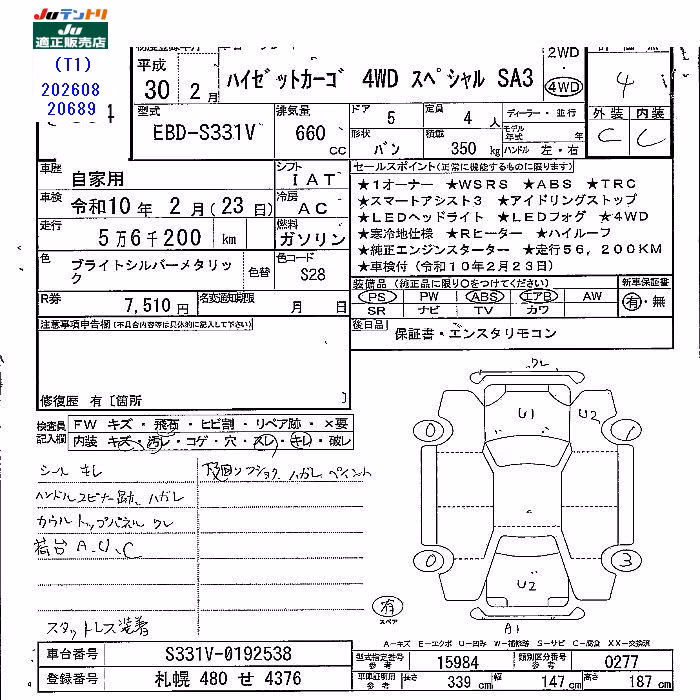 Juテントリ
Ju
適正販売店
(T1)
202608
20689
平成
30 2月
ハイゼットカーゴ 4WD スペシャル SA3
2WD
4WD
4
型式
EBD-S331V
排気量
660
CC
ドア
5
定員
4人
ディーラー・並行
形状
バン
積載
350kg
モデル年式 年
ハンドル 左・右
外装 内装
C C
車歴
自家用
シフト
IAT
車検
令和10年 2月(23日)
冷房
AC
走行
5万6千200km
燃料
ガソリン
色
ブライトシルバーメタリック
色替
色コード
S28
R券
7,510円
名変通知期限
月 日
セールスポイント(正常に機能するものに限ります)
★1オーナー ★WSRS ★ABS ★TRC
★スマートアシスト3 ★アイドリングストップ
★LEDヘッドライト ★LEDフォグ ★4WD
★寒冷地仕様 ★Rヒーター ★ハイルーフ
★純正エンジンスターター ★走行56,200KM
★車検付(令和10年2月23日)
装備品(純正品に限り○をつけてください)
PS PW ABS エアB AW
SR ナビ TV カワ
新車保証書
有・無
後日品
保証書・エンスタリモコン
注意事項申告欄(不具合内容等は具体的に記入して下さい)
修復歴 有[箇所 ]
検査員記入欄
FW キズ・飛石・ヒビ割・リペア跡・×要
内装 キズ・汚レ・コゲ・穴・スレ・キレ・破レ
シール キレ
ハンドルスピナー跡、ハガレ
カウルトップパネル ワレ
荷台 A.U.C
下回リ ショク、ハガレ ペイント
スタットレス装着
ワレ
U1
U2
0
1
0
3
U2
A1
有
スペア
A=キズ E=エクボ U=凹み W=補修跡 S=サビ C=腐食 XX=交換済
車台番号
S331V-0192538
登録番号
札幌 480 せ 4376
型式指定番号
参考
15984
類別区分番号
参考
0277
車庫証明用
参考
長さ
339cm
幅
147cm
高さ
187cm